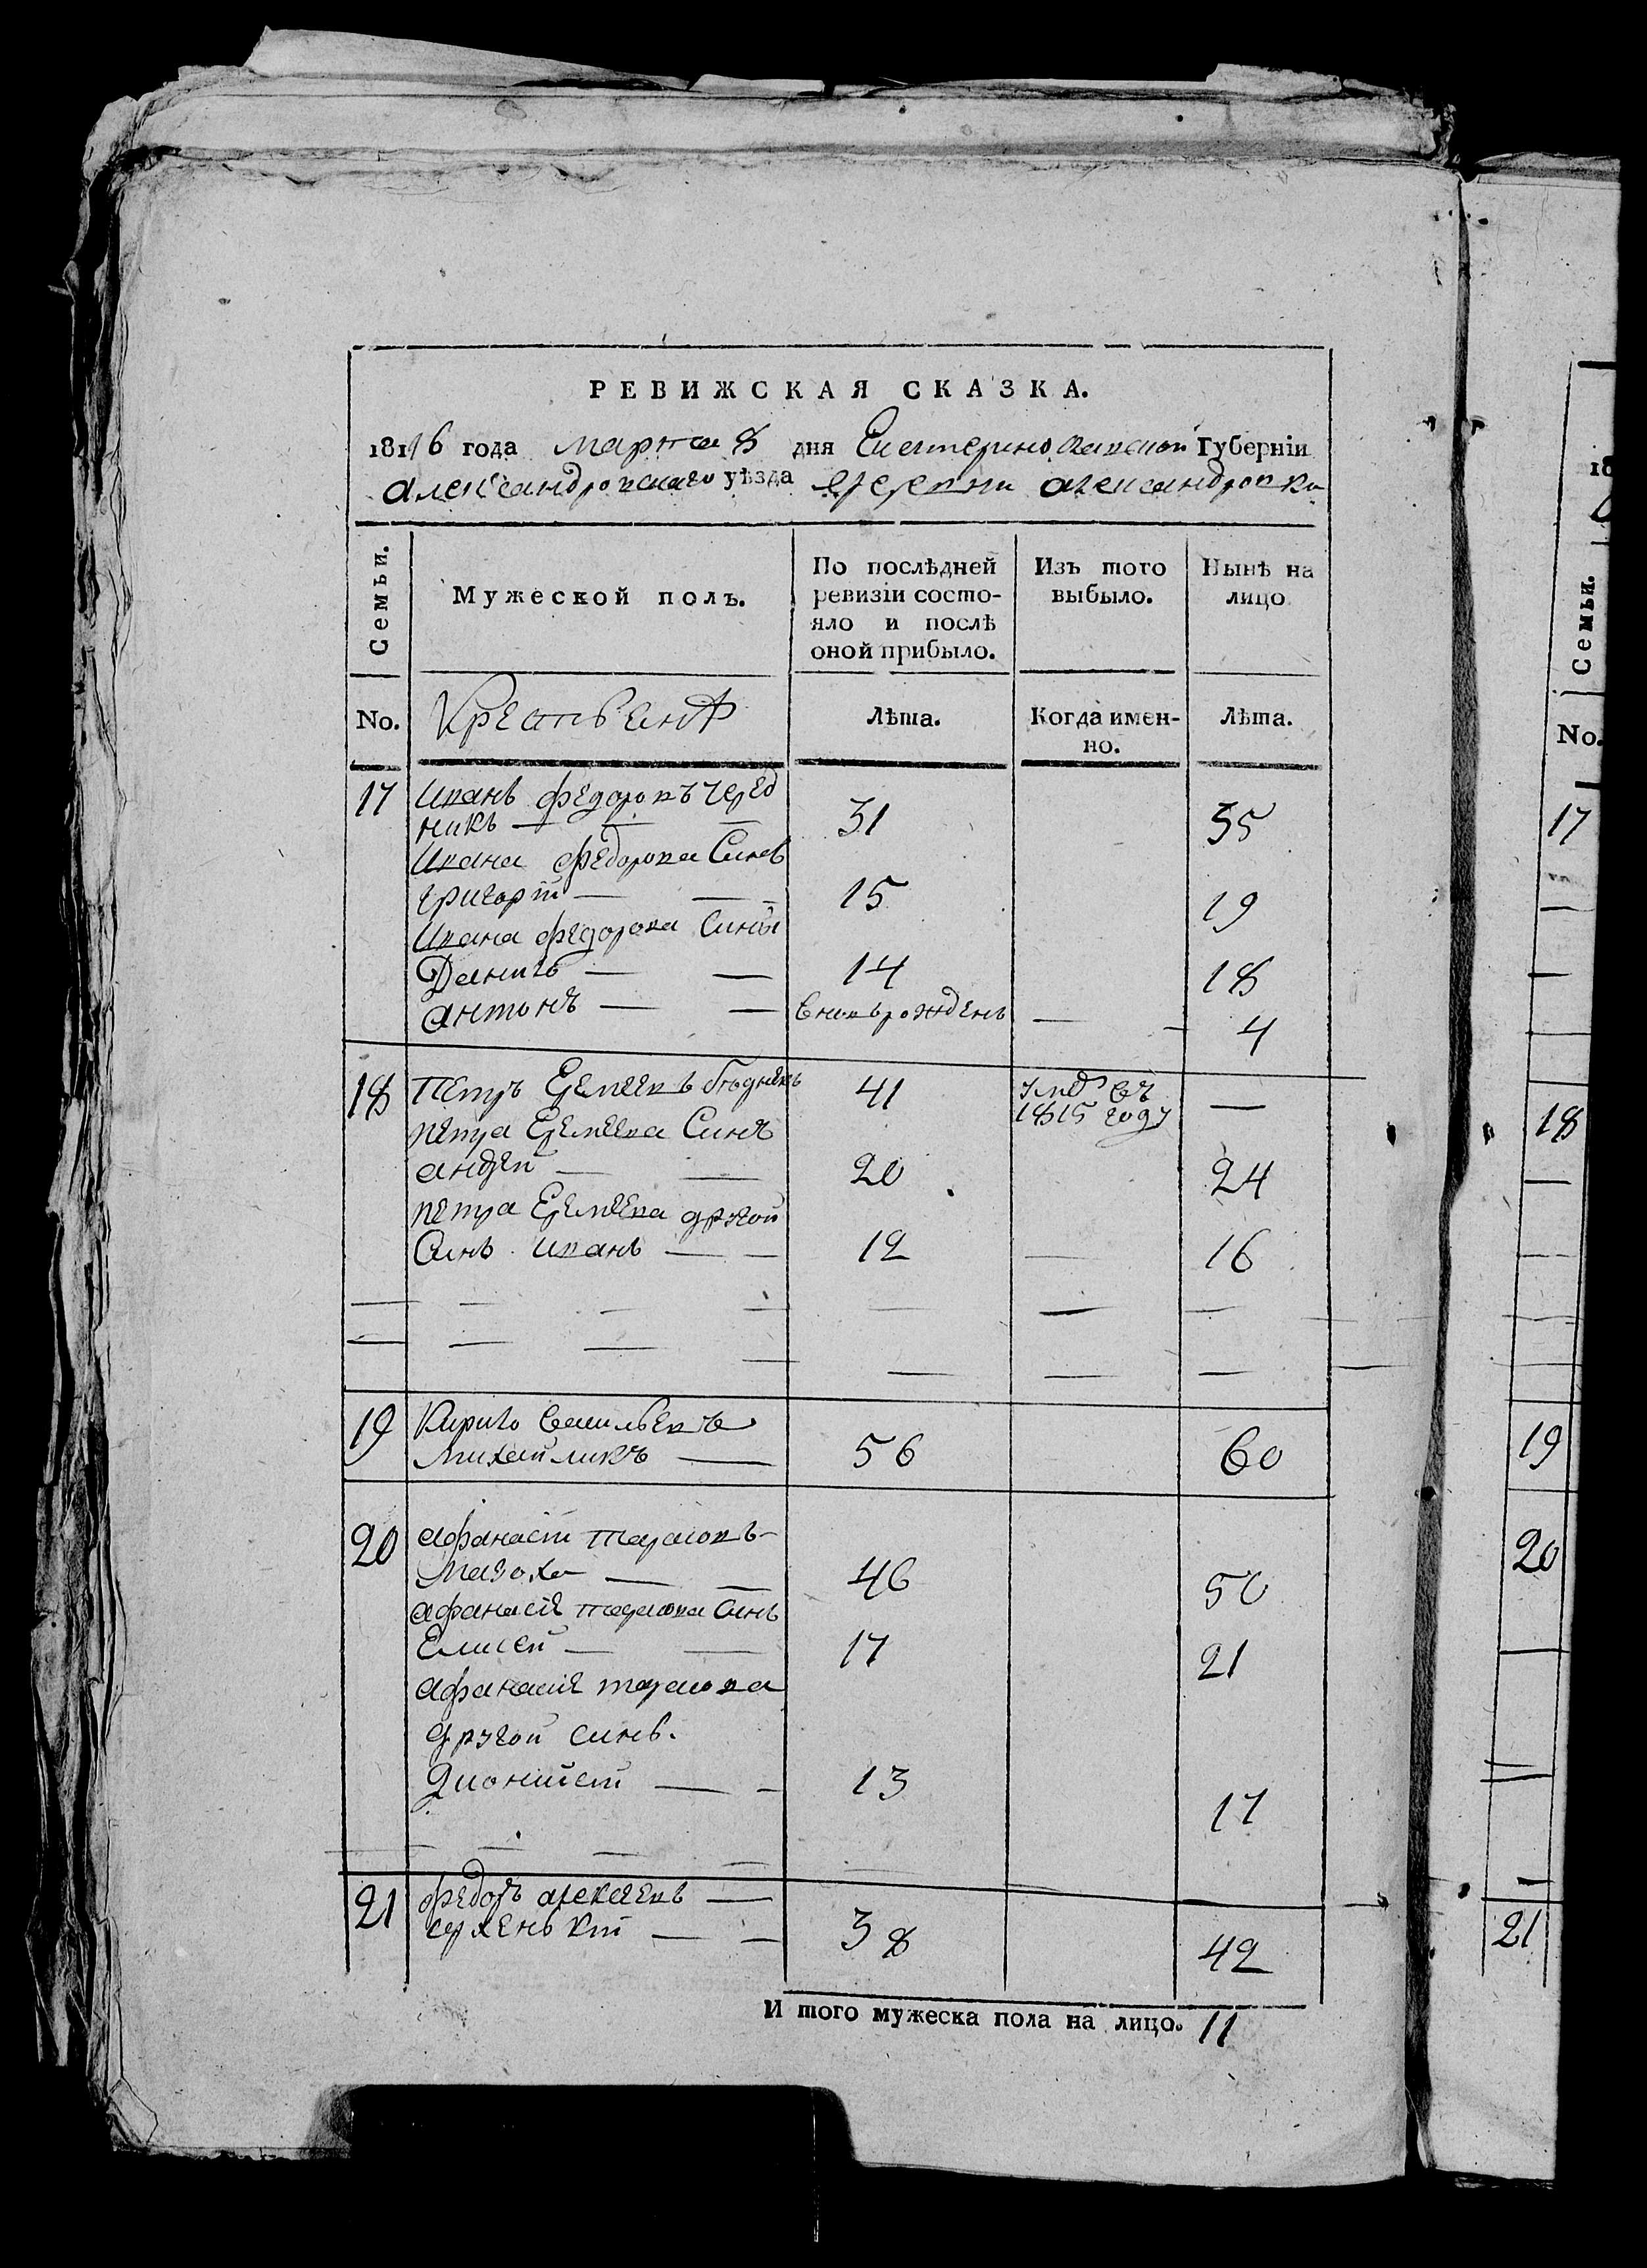 РЕВИЖСКАЯ СКАЗКА.
1816 года марта 8 дня Екатеринославской Губерніи
Александровскаго уѣзда деревни александровки
Семьи.
Мужеской полъ.
По послѣдней ревизіи состояло и послѣ оной прибыло.
Изъ того выбыло.
Нынѣ на лицо
No.
Крестьянѣ
Лѣта.
Когда именно.
Лѣта.
17 Иванъ федоровъ черед
никъ — — — 31 35
Ивана федорова Синъ
григорій — — 15 19
Ивана федорова Сини
Данило — — 14 18
антонъ — — вновьрожденъ — — 4
18 Петръ Еремеевъ бѣдникъ 41 умер въ —
1815 году
петра Еремеева Синъ
андрей — — 20 24
петра Еремеева другой
Синъ иванъ — — 12 — 16
19 Кирило васильевъ
Михайликъ — 56 60
20 афанасій тарасовъ
Мазоха — — 46 50
афанасія тарасова Синъ
Елисей — — 17 21
афанасія тарасова
другой синъ.
Дионисей — — 13 17
21 федоръ алексеевъ —
серженькій — — 38 42
И того мужеска пола на лицо. 11
18
Семьи.
No.
17
18
19
20
21